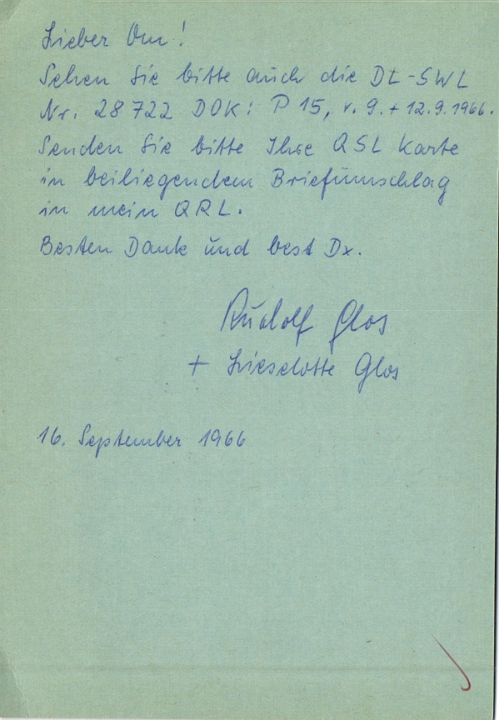 Lieber Om!
Sehen Sie bitte auch die DL-SWL
Nr. 28722 DOK: P 15, v. 9. + 12.9.1966.
Senden Sie bitte Ihre QSL Karte
in beiliegendem Briefumschlag
in mein QRL.
Besten Dank und best Dx.
Rudolf Glos
+ Lieselotte Glos
16. September 1966